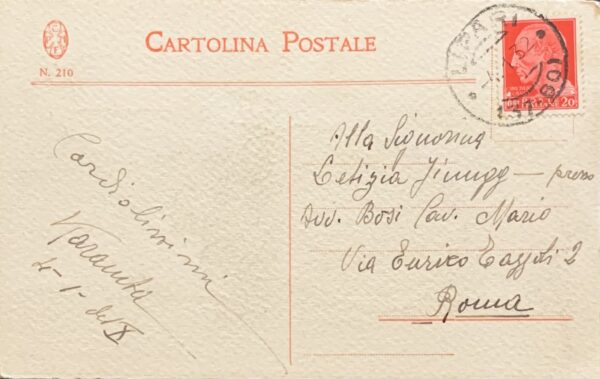 CARTOLINA POSTALE
N. 210
LIPARI
20
Alla Signorina
Letizia — presso
Avv. Bosi Cav. Mario
Via Enrico Tazzoli 2
Roma
Cordialissimi
4-1-del X